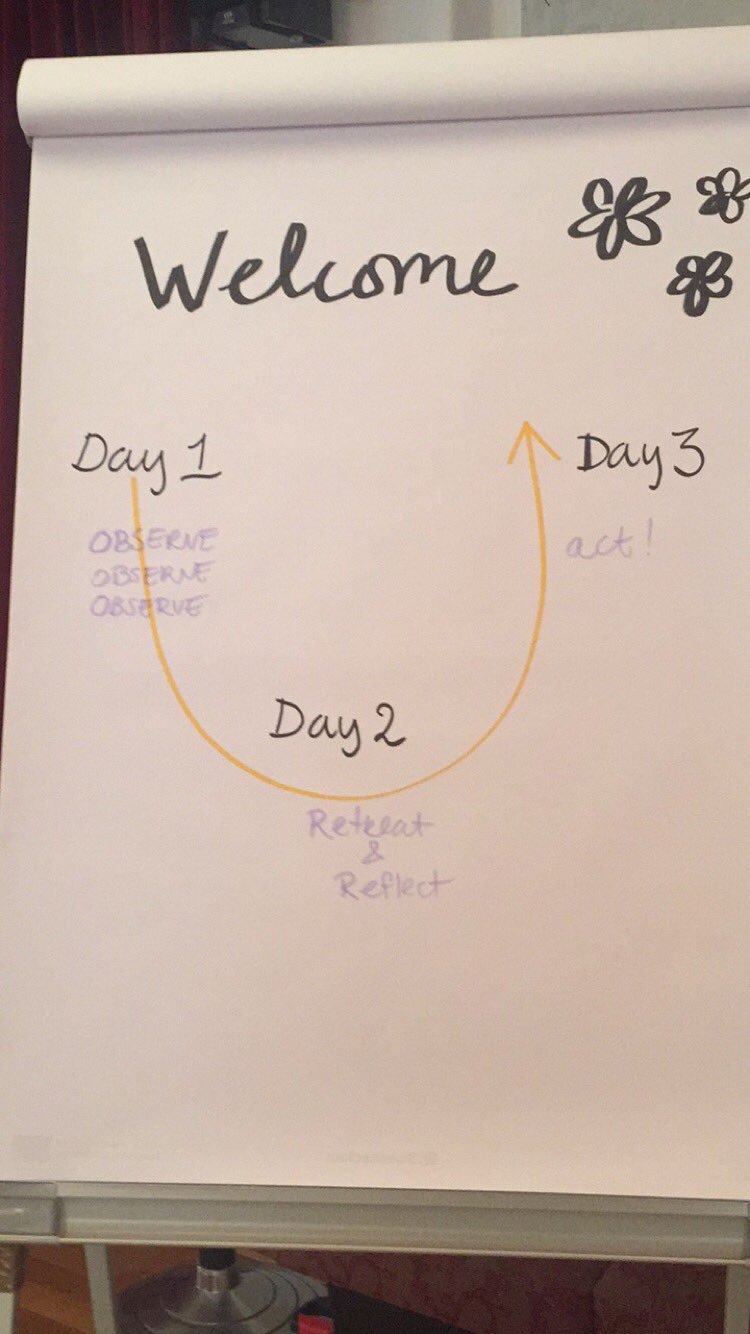 Welcome
Day 1
OBSERVE
OBSERVE
OBSERVE
Day 2
Retreat
&
Reflect
Day 3
act!